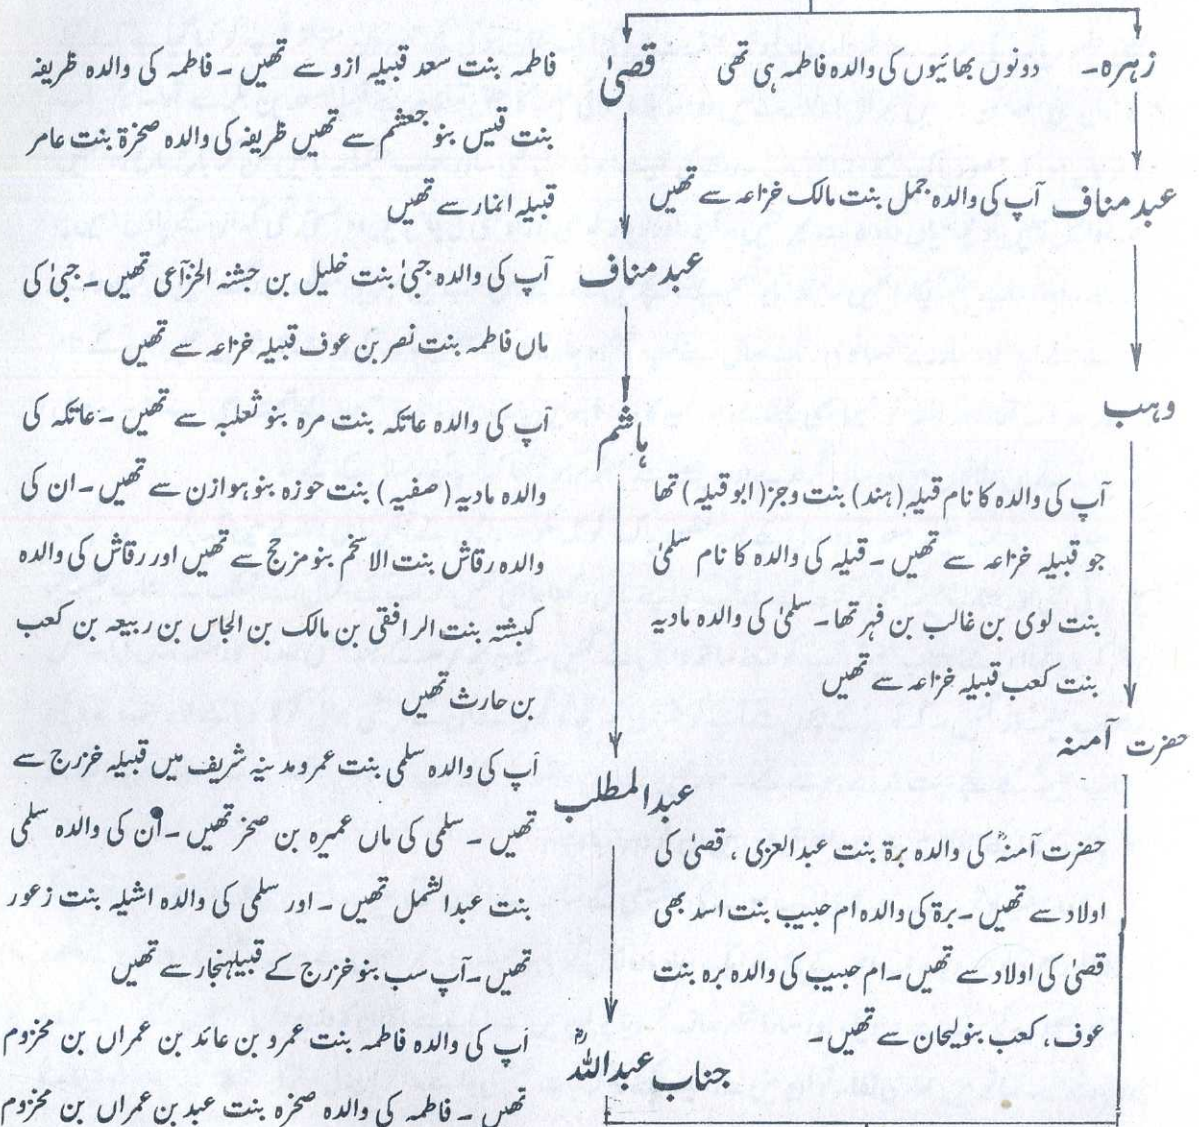 زہرہ۔ دونوں بھائیوں کی والدہ فاطمہ ہی تھی
عبد مناف آپ کی والدہ جمل بنت مالک خزاعہ سے تھیں
وہب
آپ کی والدہ کا نام قیلہ (ہند) بنت وجز (ابو قیلہ) تھا
جو قبیلہ خزاعہ سے تھیں ۔ قیلہ کی والدہ کا نام سلمیٰ
بنت لوی بن غالب بن فہر تھا۔ سلمیٰ کی والدہ مادیہ
بنت کعب قبیلہ خزاعہ سے تھیں
حضرت آمنہ
حضرت آمنہؓ کی والدہ برۃ بنت عبد العزی ، قصیٰ کی
اولاد سے تھیں ۔ برۃ کی والدہ ام حبیب بنت اسد بھی
قصیٰ کی اولاد سے تھیں ۔ ام حبیب کی والدہ برہ بنت
عوف، کعب بنو لیحان سے تھیں ۔
قصیٰ فاطمہ بنت سعد قبیلہ ازو سے تھیں ۔ فاطمہ کی والدہ ظریفہ
بنت قیس بنو جعشم سے تھیں ظریفہ کی والدہ صخرۃ بنت عامر
قبیلہ انمار سے تھیں
عبد مناف آپ کی والدہ حبیٰ بنت خلیل بن حبشہ الخزآعی تھیں ۔ حبیٰ کی
ماں فاطمہ بنت نصر بن عوف قبیلہ خزاعہ سے تھیں
ہاشم آپ کی والدہ عاتکہ بنت مرہ بنو ثعلبہ سے تھیں ۔ عاتکہ کی
والدہ مادیہ (صفیہ) بنت حوزہ بنو ہوازن سے تھیں ۔ ان کی
والدہ رقاش بنت الاسحم بنو مزحج سے تھیں اور رقاش کی والدہ
کبشتہ بنت الرافقی بن مالک بن الجاس بن ربیعہ بن کعب
بن حارث تھیں
عبد المطلب آپ کی والدہ سلمی بنت عمرو مدینہ شریف میں قبیلہ خزرج سے
تھیں ۔ سلمی کی ماں عمیرہ بن صخر تھیں ۔ ان کی والدہ سلمی
بنت عبد الشمل تھیں ۔ اور سلمی کی والدہ اشیلہ بنت زعور
تھیں ۔ آپ سب بنو خزرج کے قبیلہ نجار سے تھیں
جناب عبد اللہؓ آپ کی والدہ فاطمہ بنت عمرو بن عائد بن عمراں بن مخزوم
تھیں ۔ فاطمہ کی والدہ صخرہ بنت عبد بن عمراں بن مخزوم